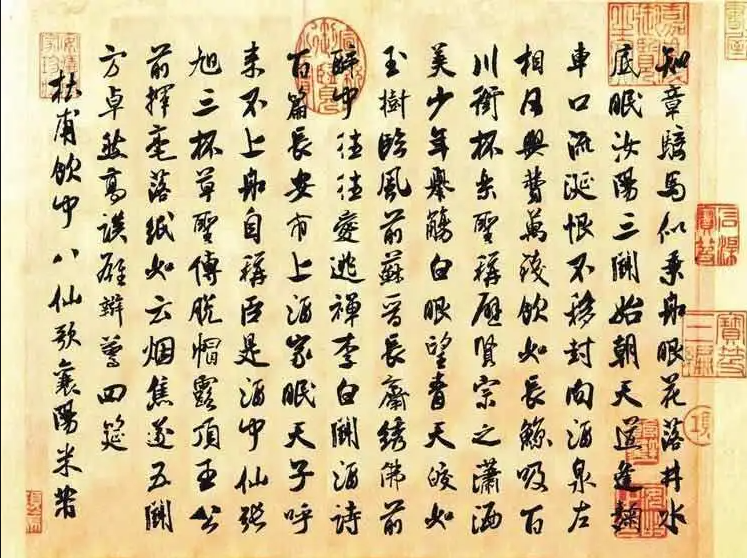 知章騎馬似乘船眼花落井水
底眠汝陽三鬥始朝天道逢麴
車口流涎恨不移封向酒泉左
相日興費萬錢飲如長鯨吸百
川銜杯樂聖稱避賢宗之瀟洒
美少年舉觴白眼望青天皎如
玉樹臨風前蘇晋長齋繡佛前
醉中往往愛逃禪李白鬥酒詩
百篇長安市上酒家眠天子呼
来不上船自稱臣是酒中仙張
旭三杯草聖傳脱帽露頂王公
前揮毫落紙如云烟焦遂五鬥
方卓然高談雄辯驚四筵
杜甫飲中八仙歌襄陽米芾